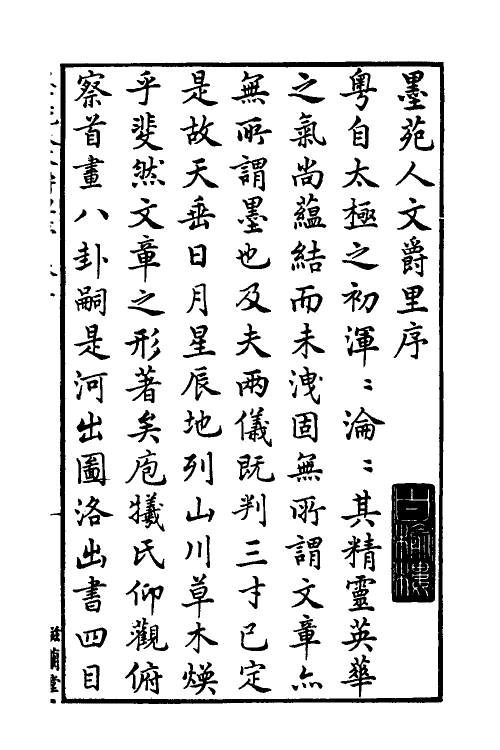 墨苑人文爵里序
粵自太極之初渾〻淪〻其精靈英華
之氣尚蘊結而未洩固無所謂文章亦
無所謂墨也及夫兩儀既判三才已定
是故天垂日月星辰地列山川草木煥
乎斐然文章之形著矣庖犧氏仰觀俯
察首畫八卦嗣是河出圖洛出書四目
滋蘭堂